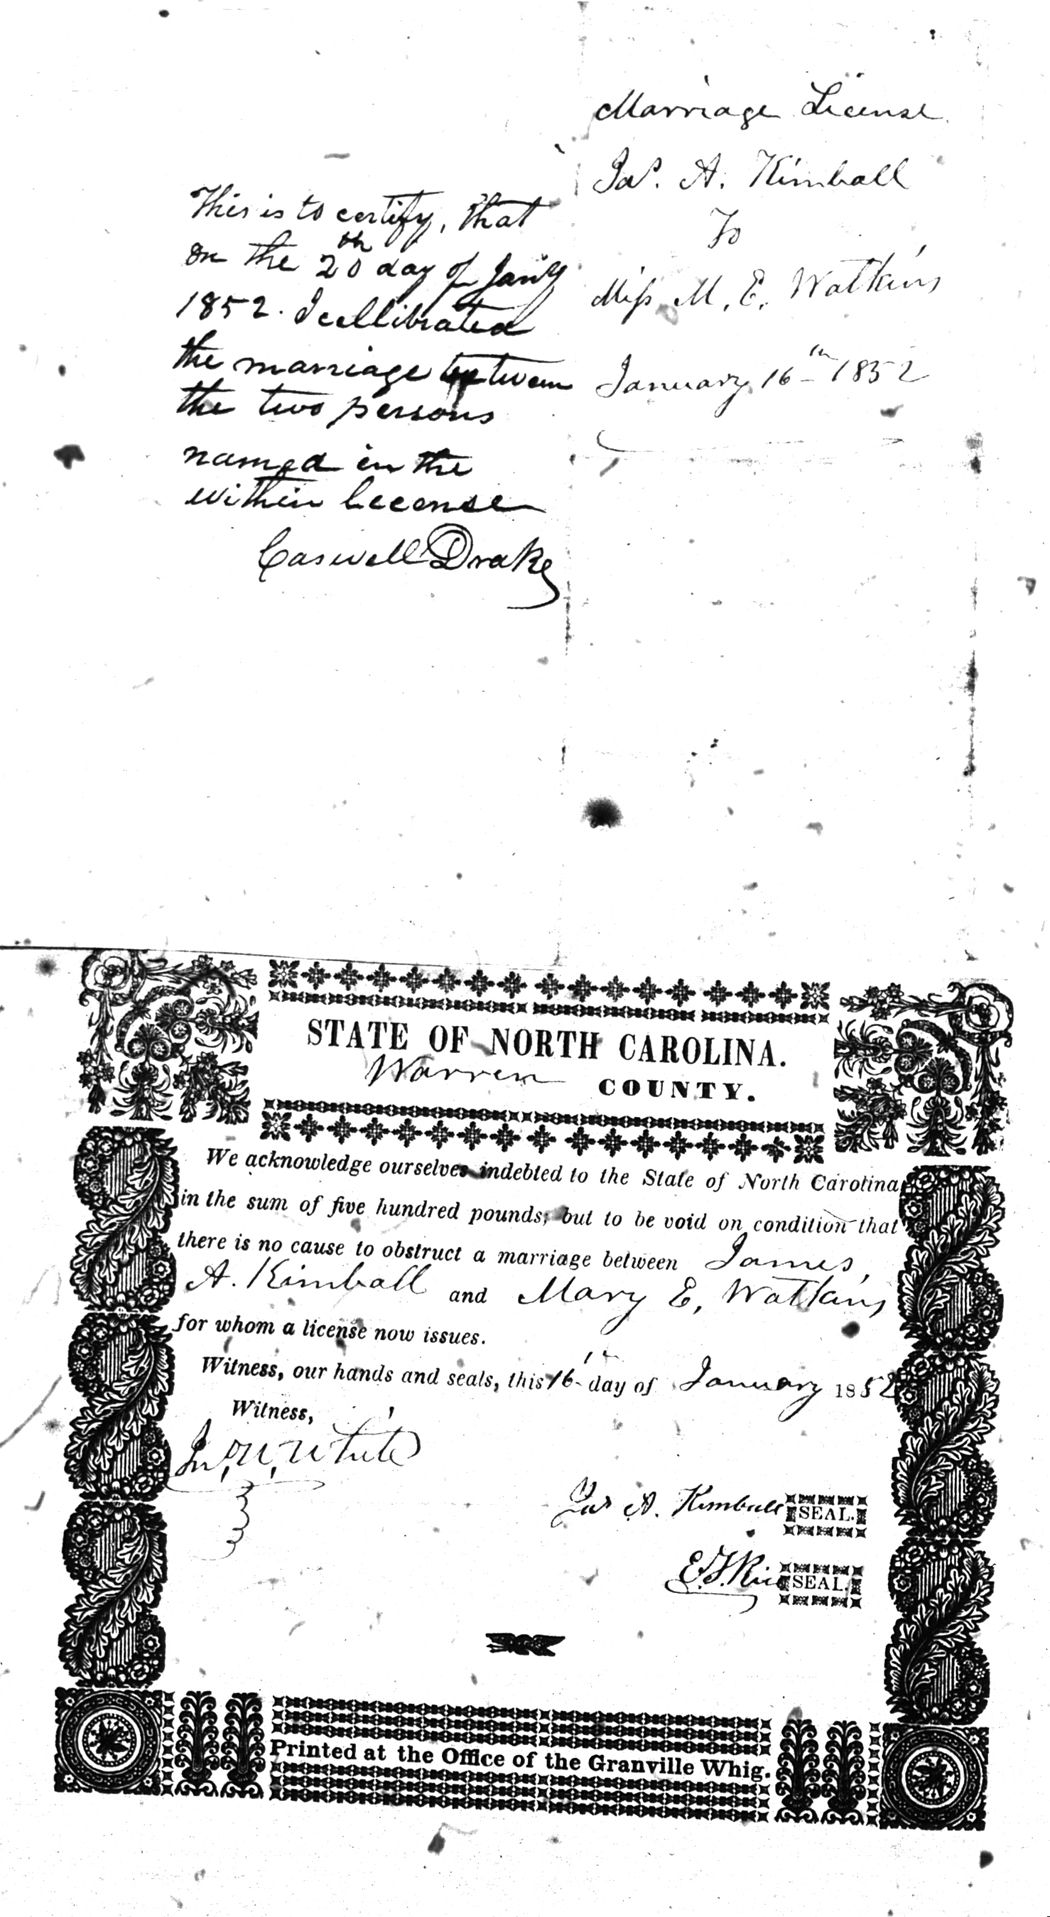 Marriage License
Jas. A. Kimball
To
Miss M. E. Watkins
January 16th 1852
This is to certify, that
on the 20th day of Jan'y
1852. I cellibrated
the marriage between
the two persons
named in the
within license
Caswell Drake
STATE OF NORTH CAROLINA.
Warren COUNTY.
We acknowledge ourselves indebted to the State of North Carolina
in the sum of five hundred pounds; but to be void on condition that
there is no cause to obstruct a marriage between James
A. Kimball and Mary E. Watkins
for whom a license now issues.
Witness, our hands and seals, this 16th day of January 1852
Witness,
Jno. W. White
Jas A. Kimball SEAL.
E. F. Rice SEAL.
Printed at the Office of the Granville Whig.